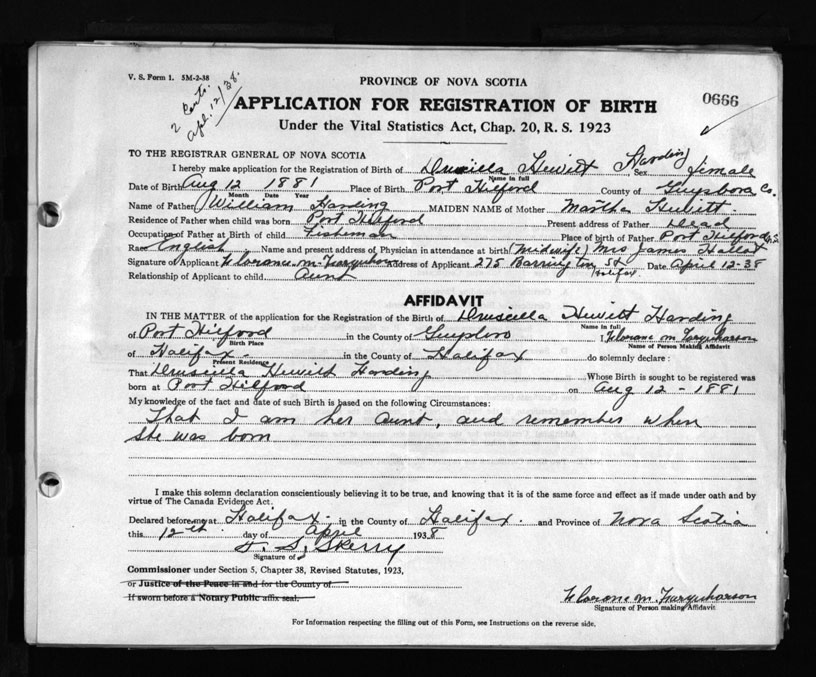 V. S. Form 1. 5M-2-38
PROVINCE OF NOVA SCOTIA
2 Certs.
Apl. 12/38.
APPLICATION FOR REGISTRATION OF BIRTH
0666
Under the Vital Statistics Act, Chap. 20, R. S. 1923
TO THE REGISTRAR GENERAL OF NOVA SCOTIA
I hereby make application for the Registration of Birth of Druscilla Hewitt Harding Sex female
Name in full
Date of Birth Aug 12 1881 Place of Birth Port Hilford County of Guysboro Co.
Month Date Year
Name of Father William Harding MAIDEN NAME of Mother Martha Hewitt
Residence of Father when child was born Port Hilford Present address of Father Dead
Occupation of Father at Birth of child Fisherman Place of birth of Father Port Hilford
Race English Name and present address of Physician in attendance at birth (Midwife) Mrs James Hallett
Signature of Applicant Florance M. Farquharson Address of Applicant 275 Barrington St Halifax Date April 12-38
Relationship of Applicant to child Aunt
AFFIDAVIT
IN THE MATTER of the application for the Registration of the Birth of Druscilla Hewitt Harding
Name in full
of Port Hilford in the County of Guysboro I Florance M Farquharson
Birth Place Name of Person Making Affidavit
of Halifax in the County of Halifax do solemnly declare :
Present Residence
That Druscilla Hewitt Harding Whose Birth is sought to be registered was
born at Port Hilford on Aug 12 - 1881
My knowledge of the fact and date of such Birth is based on the following Circumstances:
That I am her aunt, and remember when
she was born
I make this solemn declaration conscientiously believing it to be true, and knowing that it is of the same force and effect as if made under oath and by
virtue of The Canada Evidence Act.
Declared before me at Halifax in the County of Halifax and Province of Nova Scotia
this 12th day of April 1938
Skerry
Signature of
Commissioner under Section 5, Chapter 38, Revised Statutes, 1923,
or Justice of the Peace in and for the County of
If sworn before a Notary Public affix seal.
Florance M. Farquharson
Signature of Person making Affidavit
For Information respecting the filling out of this Form, see Instructions on the reverse side.